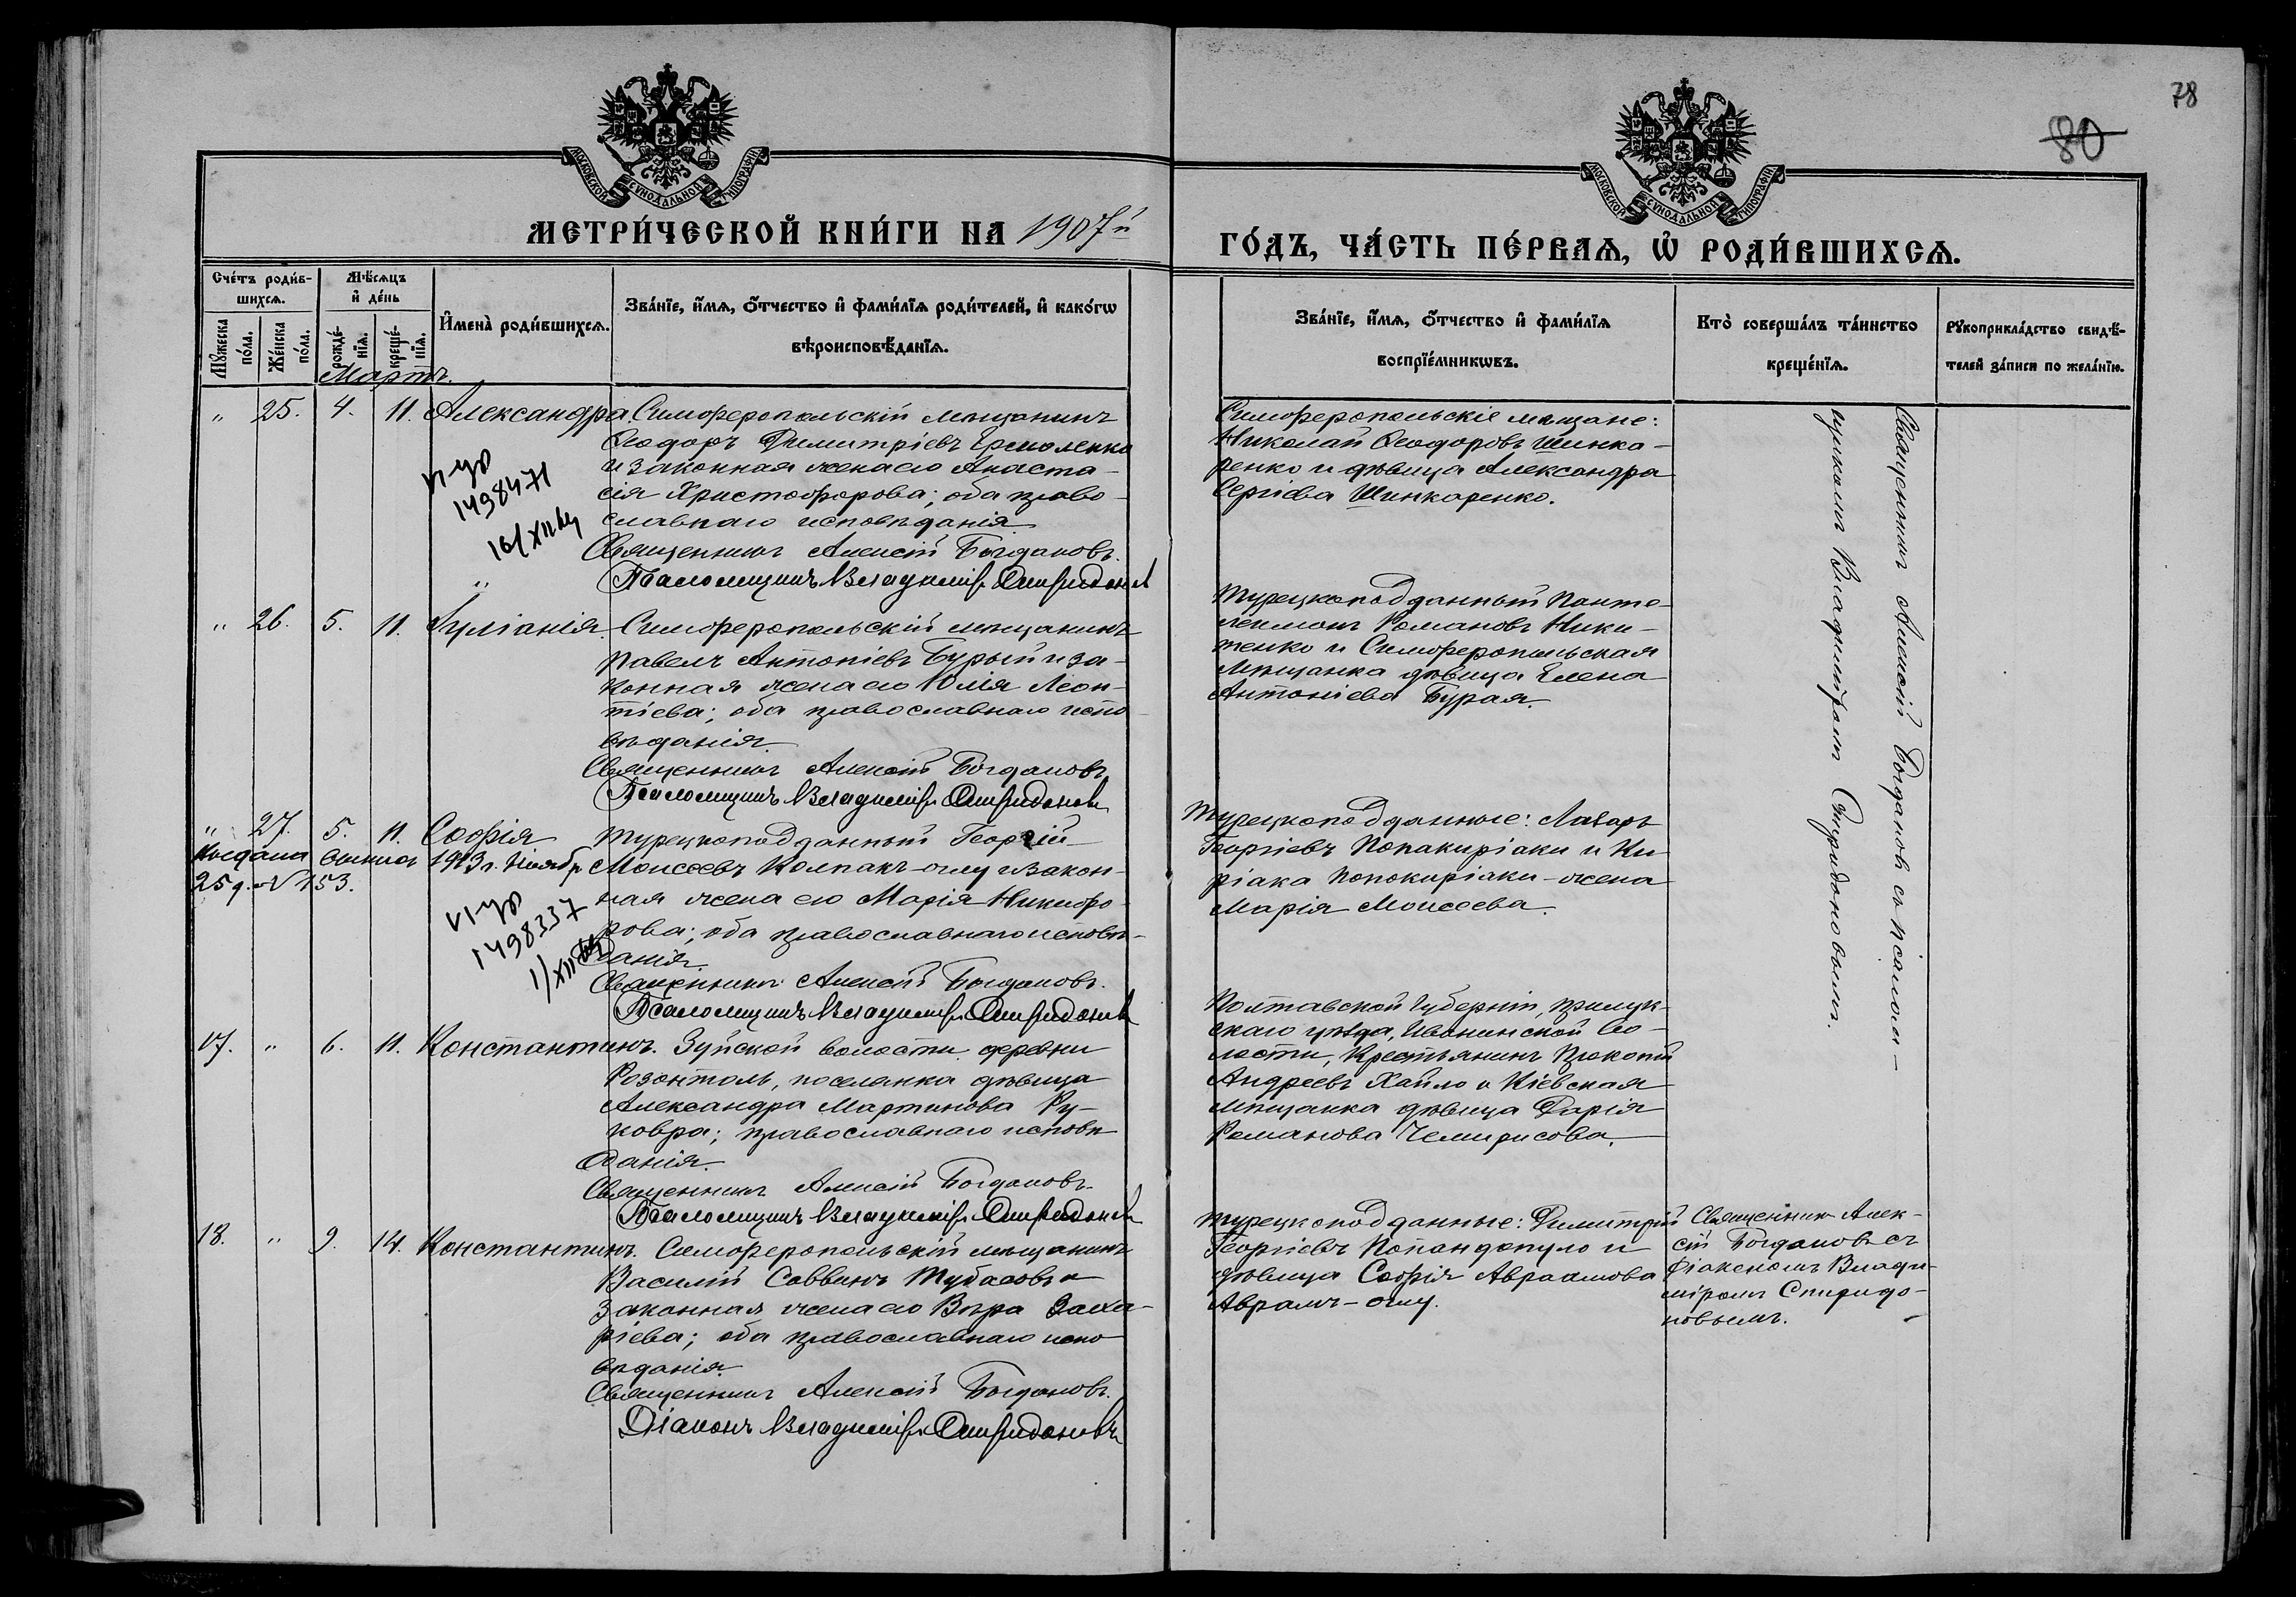 78
80
МОСКОВСКОЙ СУНОДАЛЬНОЙ ТИПОГРАФІИ
МОСКОВСКОЙ СУНОДАЛЬНОЙ ТИПОГРАФІИ
МЕТРИ́ЧЕСКОЙ КНИ́ГИ НА 1907й
ГО́ДЪ, ЧА́СТЬ ПЕ́РВАѦ, Ѡ҆ РОДИ́ВШИХСѦ.
Сче́тъ роди́в-
шихсѧ.
Мѣ́сѧцъ
и҆ де́нь
Мꙋ́жеска
по́ла.
Же́нска
по́ла.
рожде́-
нїѧ.
креще́-
нїѧ.
И҆мена̀ роди́вшихсѧ.
Зва́нїе, и҆́мѧ, ѻ҆́тчество и҆ фами́лїѧ роди́телей, и҆ како́гѡ
вѣроисповѣ́данїѧ.
Зва́нїе, и҆́мѧ, ѻ҆́тчество и҆ фами́лїѧ
воспрїе́мникѡвъ.
Кто̀ соверша́лъ та́инство
креще́нїѧ.
Рꙋкоприкла́дство свидѣ́-
телей за́писи по жела́нїю.
Мартъ.
" 25. 4. 11. Александра. Симферопольскій мѣщанинъ
Ѳеодоръ Димитріевъ Ермоленко
и законная жена его Анаста-
сія Христофорова; оба право-
славнаго исповѣданія
Священникъ Алексій Богдановъ.
Псаломщикъ Владиміръ Спиридоновъ
1498471
Симферопольскіе мѣщане:
Николай Ѳеодоровъ Шинка-
ренко и дѣвица Александра
Сергіева Шинкаренко.
" 26. 5. 11. Іуліанія. Симферопольскій мѣщанинъ
Павелъ Антоніевъ Бурый и за-
конная жена его Юлія Леон-
тіева; оба православнаго испо-
вѣданія.
Священникъ Алексій Богдановъ
Псаломщикъ Владиміръ Спиридоновъ
Турецкоподданный Панте-
леимонъ Романовъ Ники-
тенко и Симферопольская
мѣщанка дѣвица Елена
Антоніева Бурая.
" 27. 5. 11. Софія Турецкоподданный Георгій
Моисеевъ Колпакъ-оглу и закон-
ная жена его Марія Никифо-
рова; оба православнаго исповѣ-
данія.
Священникъ Алексій Богдановъ.
Псаломщикъ Владиміръ Спиридоновъ
выписъ 1913 г. Ноябр
25 д. № 153.
1498337
Турецкоподданные: Лазарь
Георгіевъ Попакиріаки и Ки-
ріака Попокиріаки-жена
Марія Моисеева.
17. " 6. 11. Константинъ. Зуйской волости деревни
Розенталь, поселянка дѣвица
Александра Мартинова Ру-
ковра; православнаго исповѣ
данія.
Священникъ Алексій Богдановъ
Псаломщикъ Владиміръ Спиридоновъ
Полтавской Губерніи, Прилук-
скаго уѣзда, Иванинской Во-
лости, Крестьянинъ Прокопій
Андреевъ Хайло и Кіевская
мѣщанка дѣвица Дарія
Романова Чемирисова.
18. " 9. 14. Константинъ. Симферопольскій мѣщанинъ
Василій Саввинъ Тубасовъ и
законная жена его Вѣра Заха-
ріева; оба православнаго испо
вѣданія.
Священникъ Алексій Богдановъ.
Діаконъ Владиміръ Спиридоновъ
Турецкоподданные: Димитрій
Георгіевъ Попандопуло и
дѣвица Софія Авраамова
Аврамъ-оглу.
Священникъ Алексій Богдановъ съ псалом-
щикомъ Владиміромъ Спиридоновымъ.
Священникъ Алек-
сій Богдановъ съ
діакономъ Влади-
міромъ Спиридо-
новымъ.